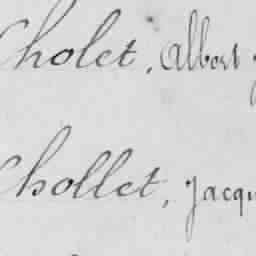 Cholet, Albert
Chollet, Jacqu